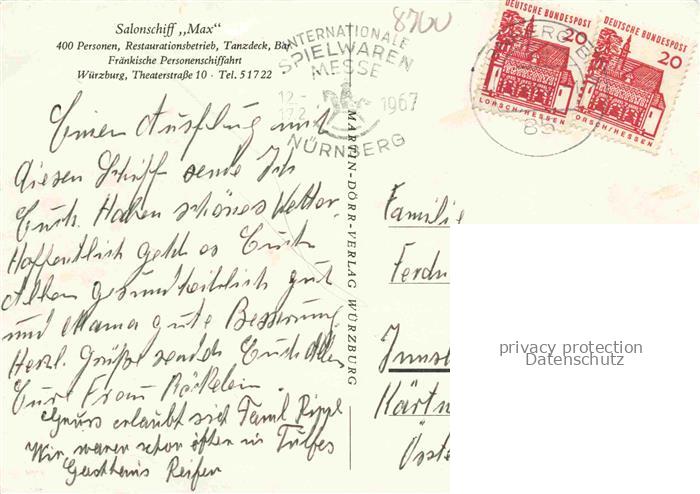 Salonschiff „Max“
400 Personen, Restaurationsbetrieb, Tanzdeck, Bar
Fränkische Personenschiffahrt
Würzburg, Theaterstraße 10 · Tel. 51722
8700
INTERNATIONALE
SPIELWAREN
MESSE
12.-
17.2. 1967
NÜRNBERG
DEUTSCHE BUNDESPOST
20
LORSCH/HESSEN
DEUTSCHE BUNDESPOST
20
LORSCH/HESSEN
85
Einen Ausflug mit
diesen Schiff sende Ich
Euch. Haben schönes Wetter.
Hoffentlich geht es Euch
Allen gesundheitlich gut
und Mama gute Besserung
Herzl. Grüße sendet Euch allen
Eure Frau
Gruss erlaubt sich Faml.
Wir waren schon öfters in
Gasthaus Reifen
MARTIN-DÖRR-VERLAG WÜRZBURG
Familie
Ferdi
Innsb
Kärtn
Öste
privacy protection
Datenschutz